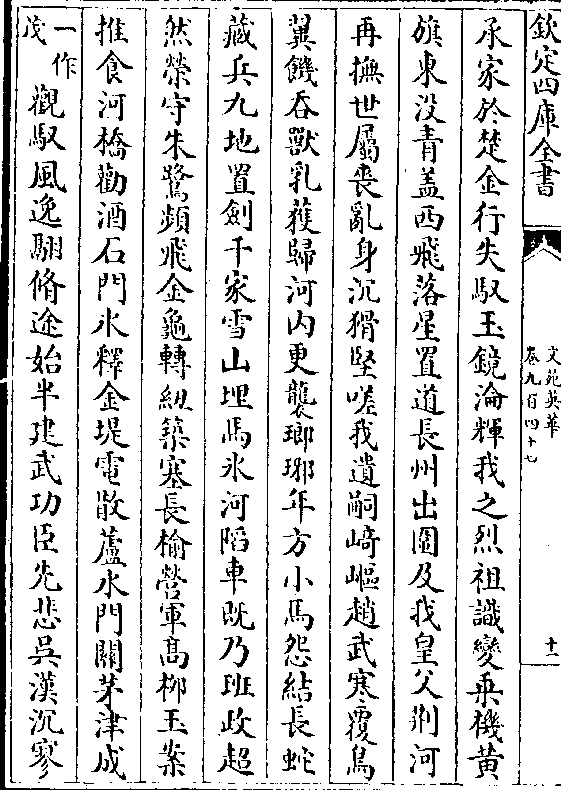 欽定四庫全書
文苑英華
卷九百四十七
十一
承家於楚金行失馭玉鏡淪輝我之烈祖識變乘機黃
旗東没青蓋西飛落星置道長州出圍及我皇父荆河
再撫世屬喪亂身沉猾堅嗟我遺嗣﨑嶇趙武寒覆鳥
翼饑吞獸乳獲歸河内更襲瑯琊年方小馬怨結長蛇
藏兵九地置劍千家雪山埋馬氷河䧟車既乃班政超
然榮守朱鷺頻飛金龜轉紐築塞長榆營軍髙栁玉案
推食河橋勸酒石門氷釋金堤電散蘆水門關茅津成
觀馭風逸翮脩途始半建武功臣先悲吳漢沉寥
一作
茂